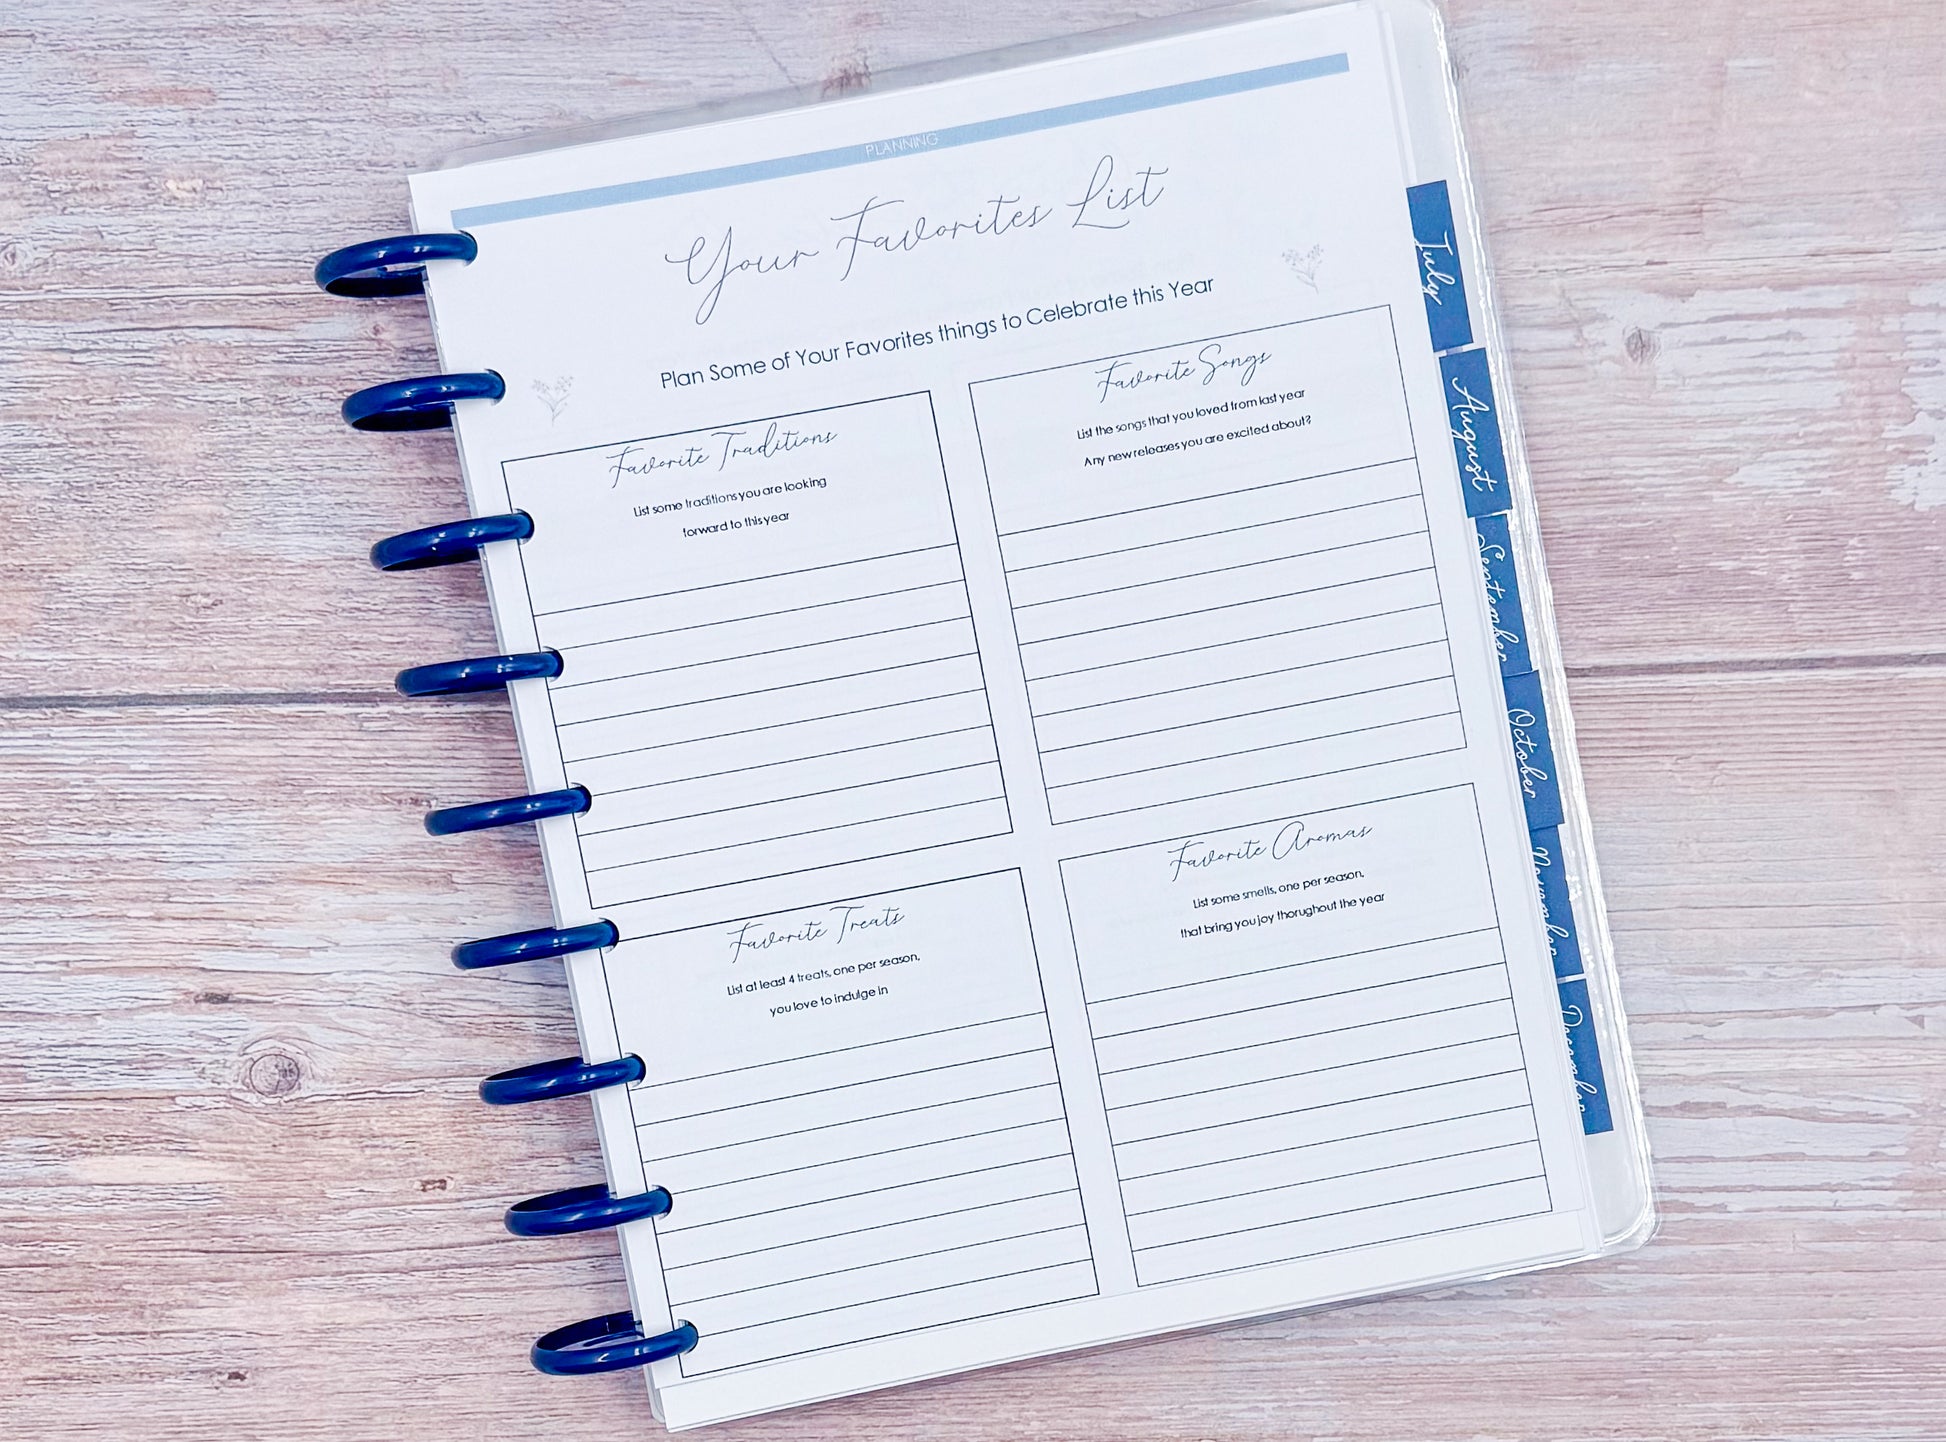 PLANNING
Your Favorites List
Plan Some of Your Favorites things to Celebrate this Year
Favorite Traditions
List some traditions you are looking
forward to this year
Favorite Songs
List the songs that you loved from last year
Any new releases you are excited about?
Favorite Treats
List at least 4 treats, one per season,
you love to indulge in
Favorite Aromas
List some smells, one per season,
that bring you joy thorughout the year
July
August
September
October
November
December